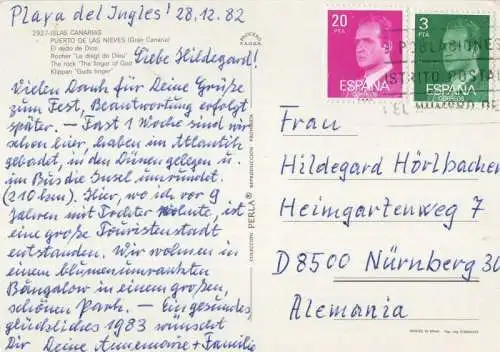 Playa del Ingles! 28.12.82
2927-ISLAS CANARIAS
PUERTO DE LAS NIEVES (Gran Canaria)
El dedo de Dios
Rocher "Le doigt du Dieu"
The rock "The finger of God"
Klippen "Gods finger"
Liebe Hildegard!
Vielen Dank für Deine Grüße
zum Fest, Beantwortung erfolgt
später. – Fast 1 Woche sind wir
schon hier, haben im Atlantik
gebadet, in den Dünen gelegen u.
im Bus die Insel umrundet.
(210 km). Hier, wo ich vor 9
Jahren mit Tochter wohnte, ist
eine große Touristenstadt
entstanden. Wir wohnen in
einem blumenumrankten
Bungalow in einem großen,
schönen Park. – Ein gesundes
glückliches 1983 wünscht
Dir Deine Annemarie + Familie
COLECCION PERLA REPRODUCCION PROHIBIDA
20
PTA
ESPAÑA
CORREOS
3
PTA
ESPAÑA
CORREOS
POBLACIONES
DISTRITO POSTAL
EL
Frau
Hildegard Hörlbacher
Heimgartenweg 7
D 8500 Nürnberg 30
Alemania